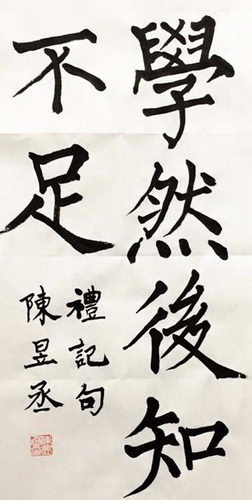 學然後知
不足
禮記句
陳昱丞